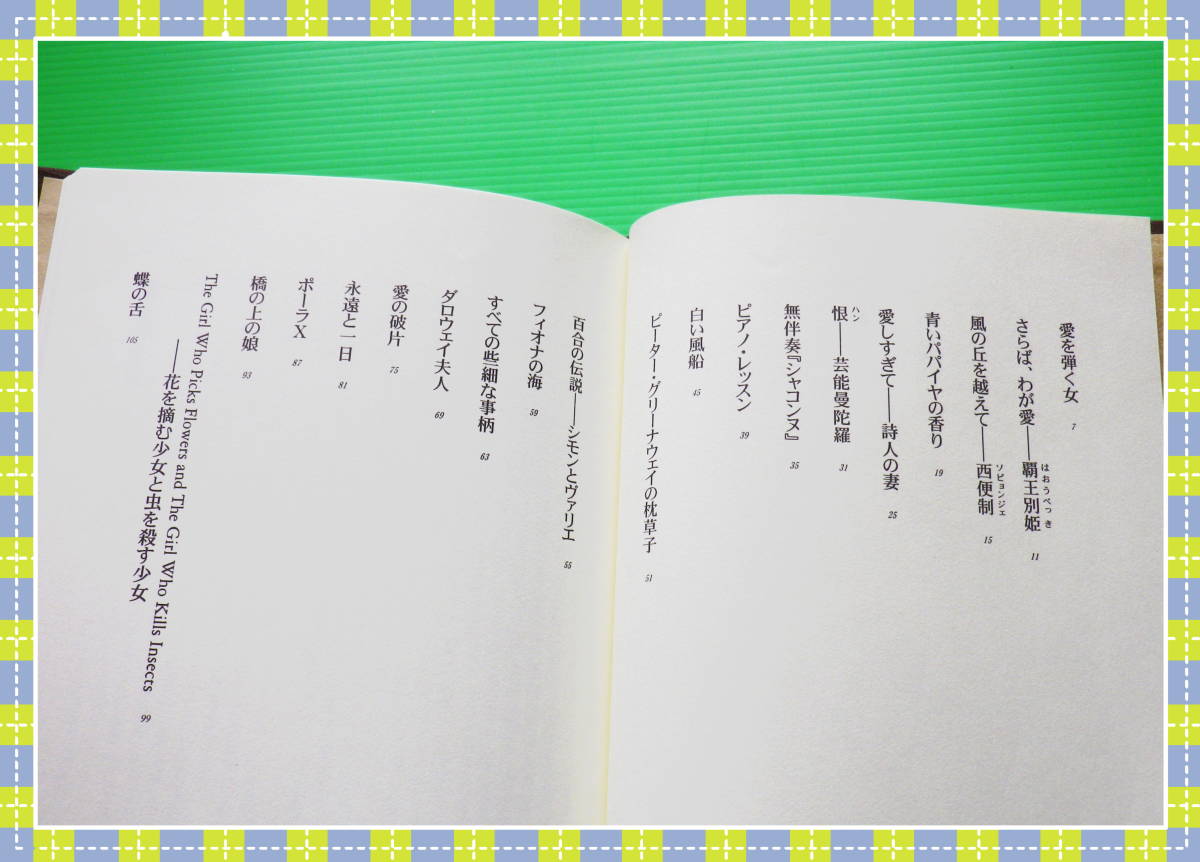 愛を弾く女 7
さらば、わが愛――覇王別姫 11
はおうべっき
風の丘を越えて――西便制 15
ソピョンジェ
青いパパイヤの香り 19
愛しすぎて――詩人の妻 25
恨――芸能曼陀羅 31
ハン
無伴奏『シャコンヌ』 35
ピアノ・レッスン 39
白い風船 45
ピーター・グリーナウェイの枕草子 51
百合の伝説――シモンとヴァリエ 55
フィオナの海 59
すべての些細な事柄 63
ダロウェイ夫人 69
愛の破片 75
永遠と一日 81
ポーラX 87
橋の上の娘 93
The Girl Who Picks Flowers and The Girl Who Kills Insects
――花を摘む少女と虫を殺す少女 99
蝶の舌 105